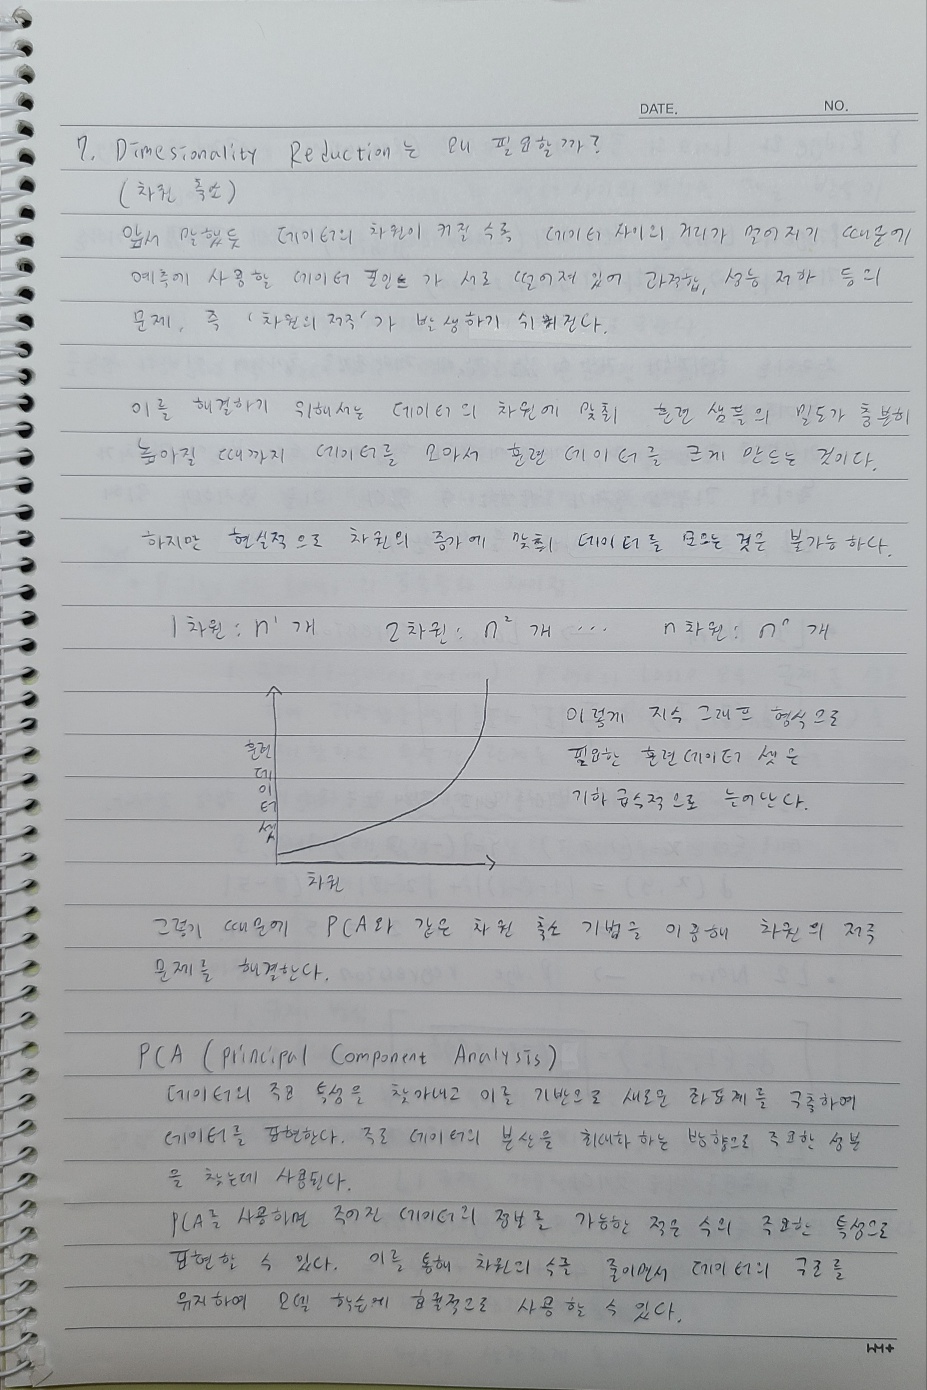 DATE. NO.
7. Dimesionality Reduction는 왜 필요할까?
(차원 축소)
앞서 말했듯 데이터의 차원이 커질 수록 데이터 사이의 거리가 멀어지기 때문에
예측에 사용할 데이터 포인트가 서로 떨어져 있어 과적합, 성능 저하 등의
문제, 즉 '차원의 저주'가 발생하기 쉬워진다.
이를 해결하기 위해서는 데이터의 차원에 맞춰 훈련 샘플의 밀도가 충분히
높아질 때까지 데이터를 모아서 훈련 데이터를 크게 만드는 것이다.
하지만 현실적으로 차원의 증가에 맞춰 데이터를 모으는 것은 불가능하다.
1차원 : n¹ 개 2차원 : n² 개 ... n차원 : nⁿ 개
이렇게 지수 그래프 형식으로
필요한 훈련데이터 셋은
기하 급수적으로 늘어난다.
훈련
데
이
터
셋
차원
그렇기 때문에 PCA와 같은 차원 축소 기법을 이용해 차원의 저주
문제를 해결한다.
PCA (Principal Component Analysis)
데이터의 주요 특성을 찾아내고 이를 기반으로 새로운 좌표계를 구축하여
데이터를 표현한다. 주로 데이터의 분산을 최대화 하는 방향으로 주요한 성분
을 찾는데 사용된다.
PCA를 사용하면 주어진 데이터의 정보를 가능한 적은 수의 주요한 특성으로
표현할 수 있다. 이를 통해 차원의 수를 줄이면서 데이터의 구조를
유지하여 모델 학습에 효율적으로 사용할 수 있다.